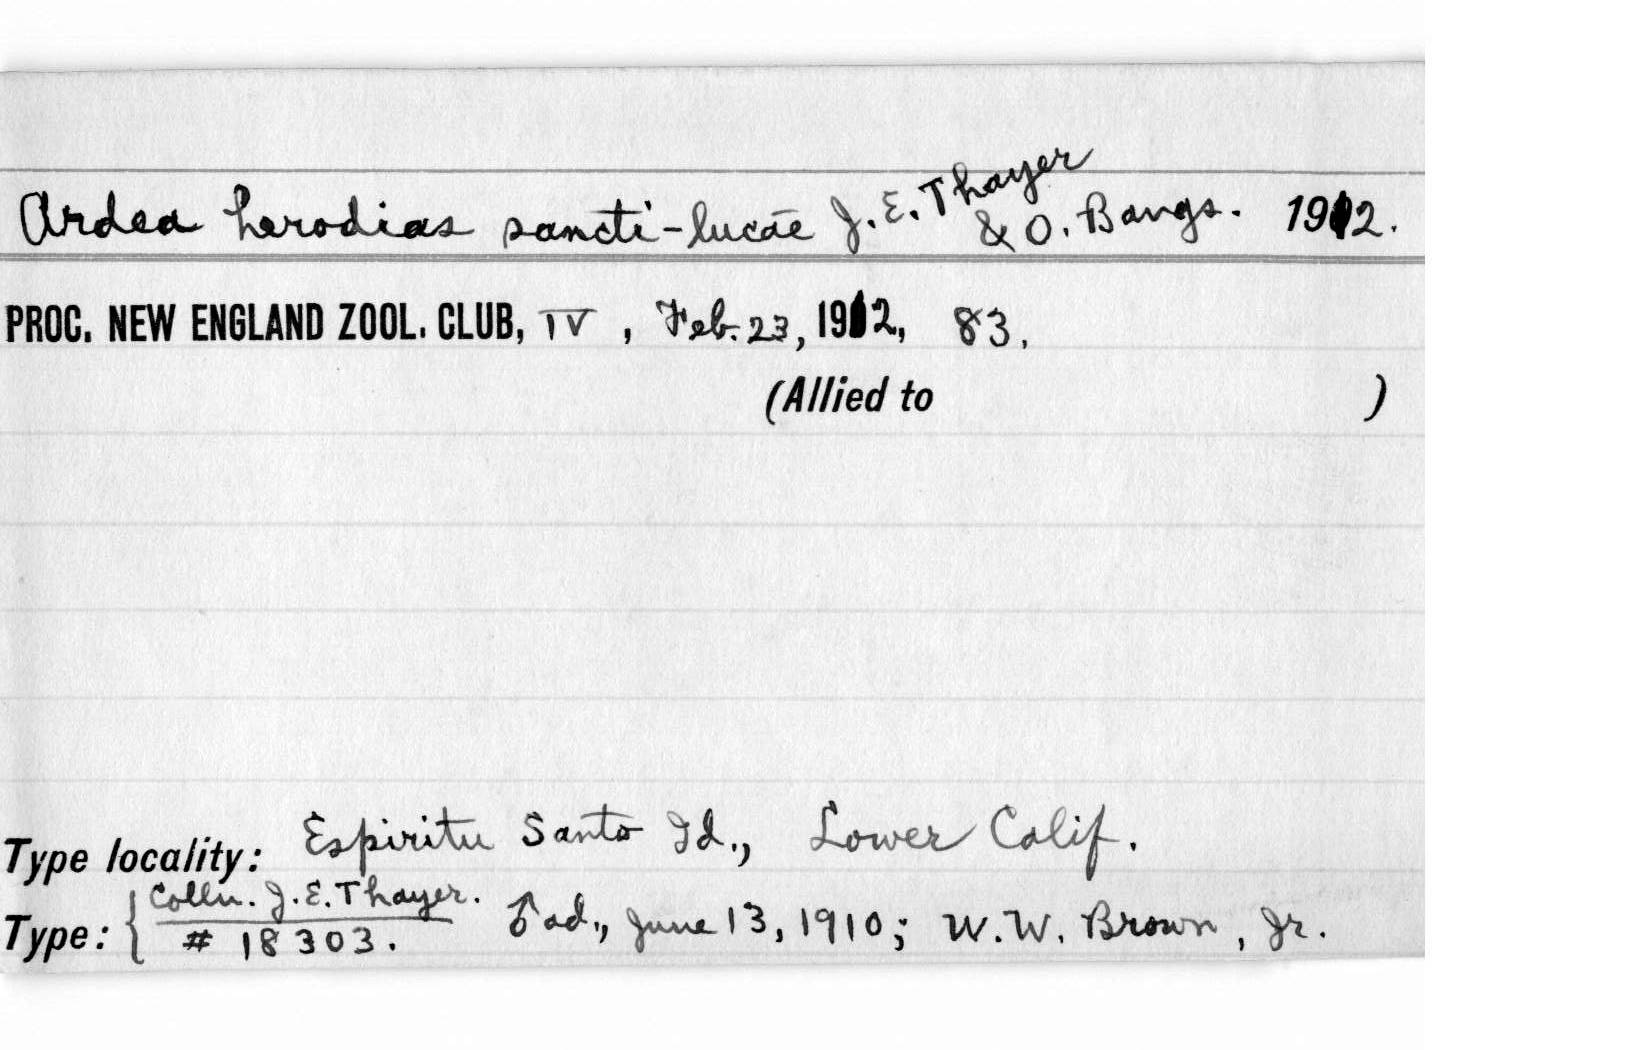 Ardea herodias sancti-lucae J. E. Thayer & O. Bangs. 1912.
PROC. NEW ENGLAND ZOOL. CLUB, IV, Feb. 23, 1912, 83.
(Allied to )
Type locality: Espiritu Santo Id., Lower Calif.
Type: { Colln. J. E. Thayer. # 18303. ♂ ad., June 13, 1910; W. W. Brown, Jr.